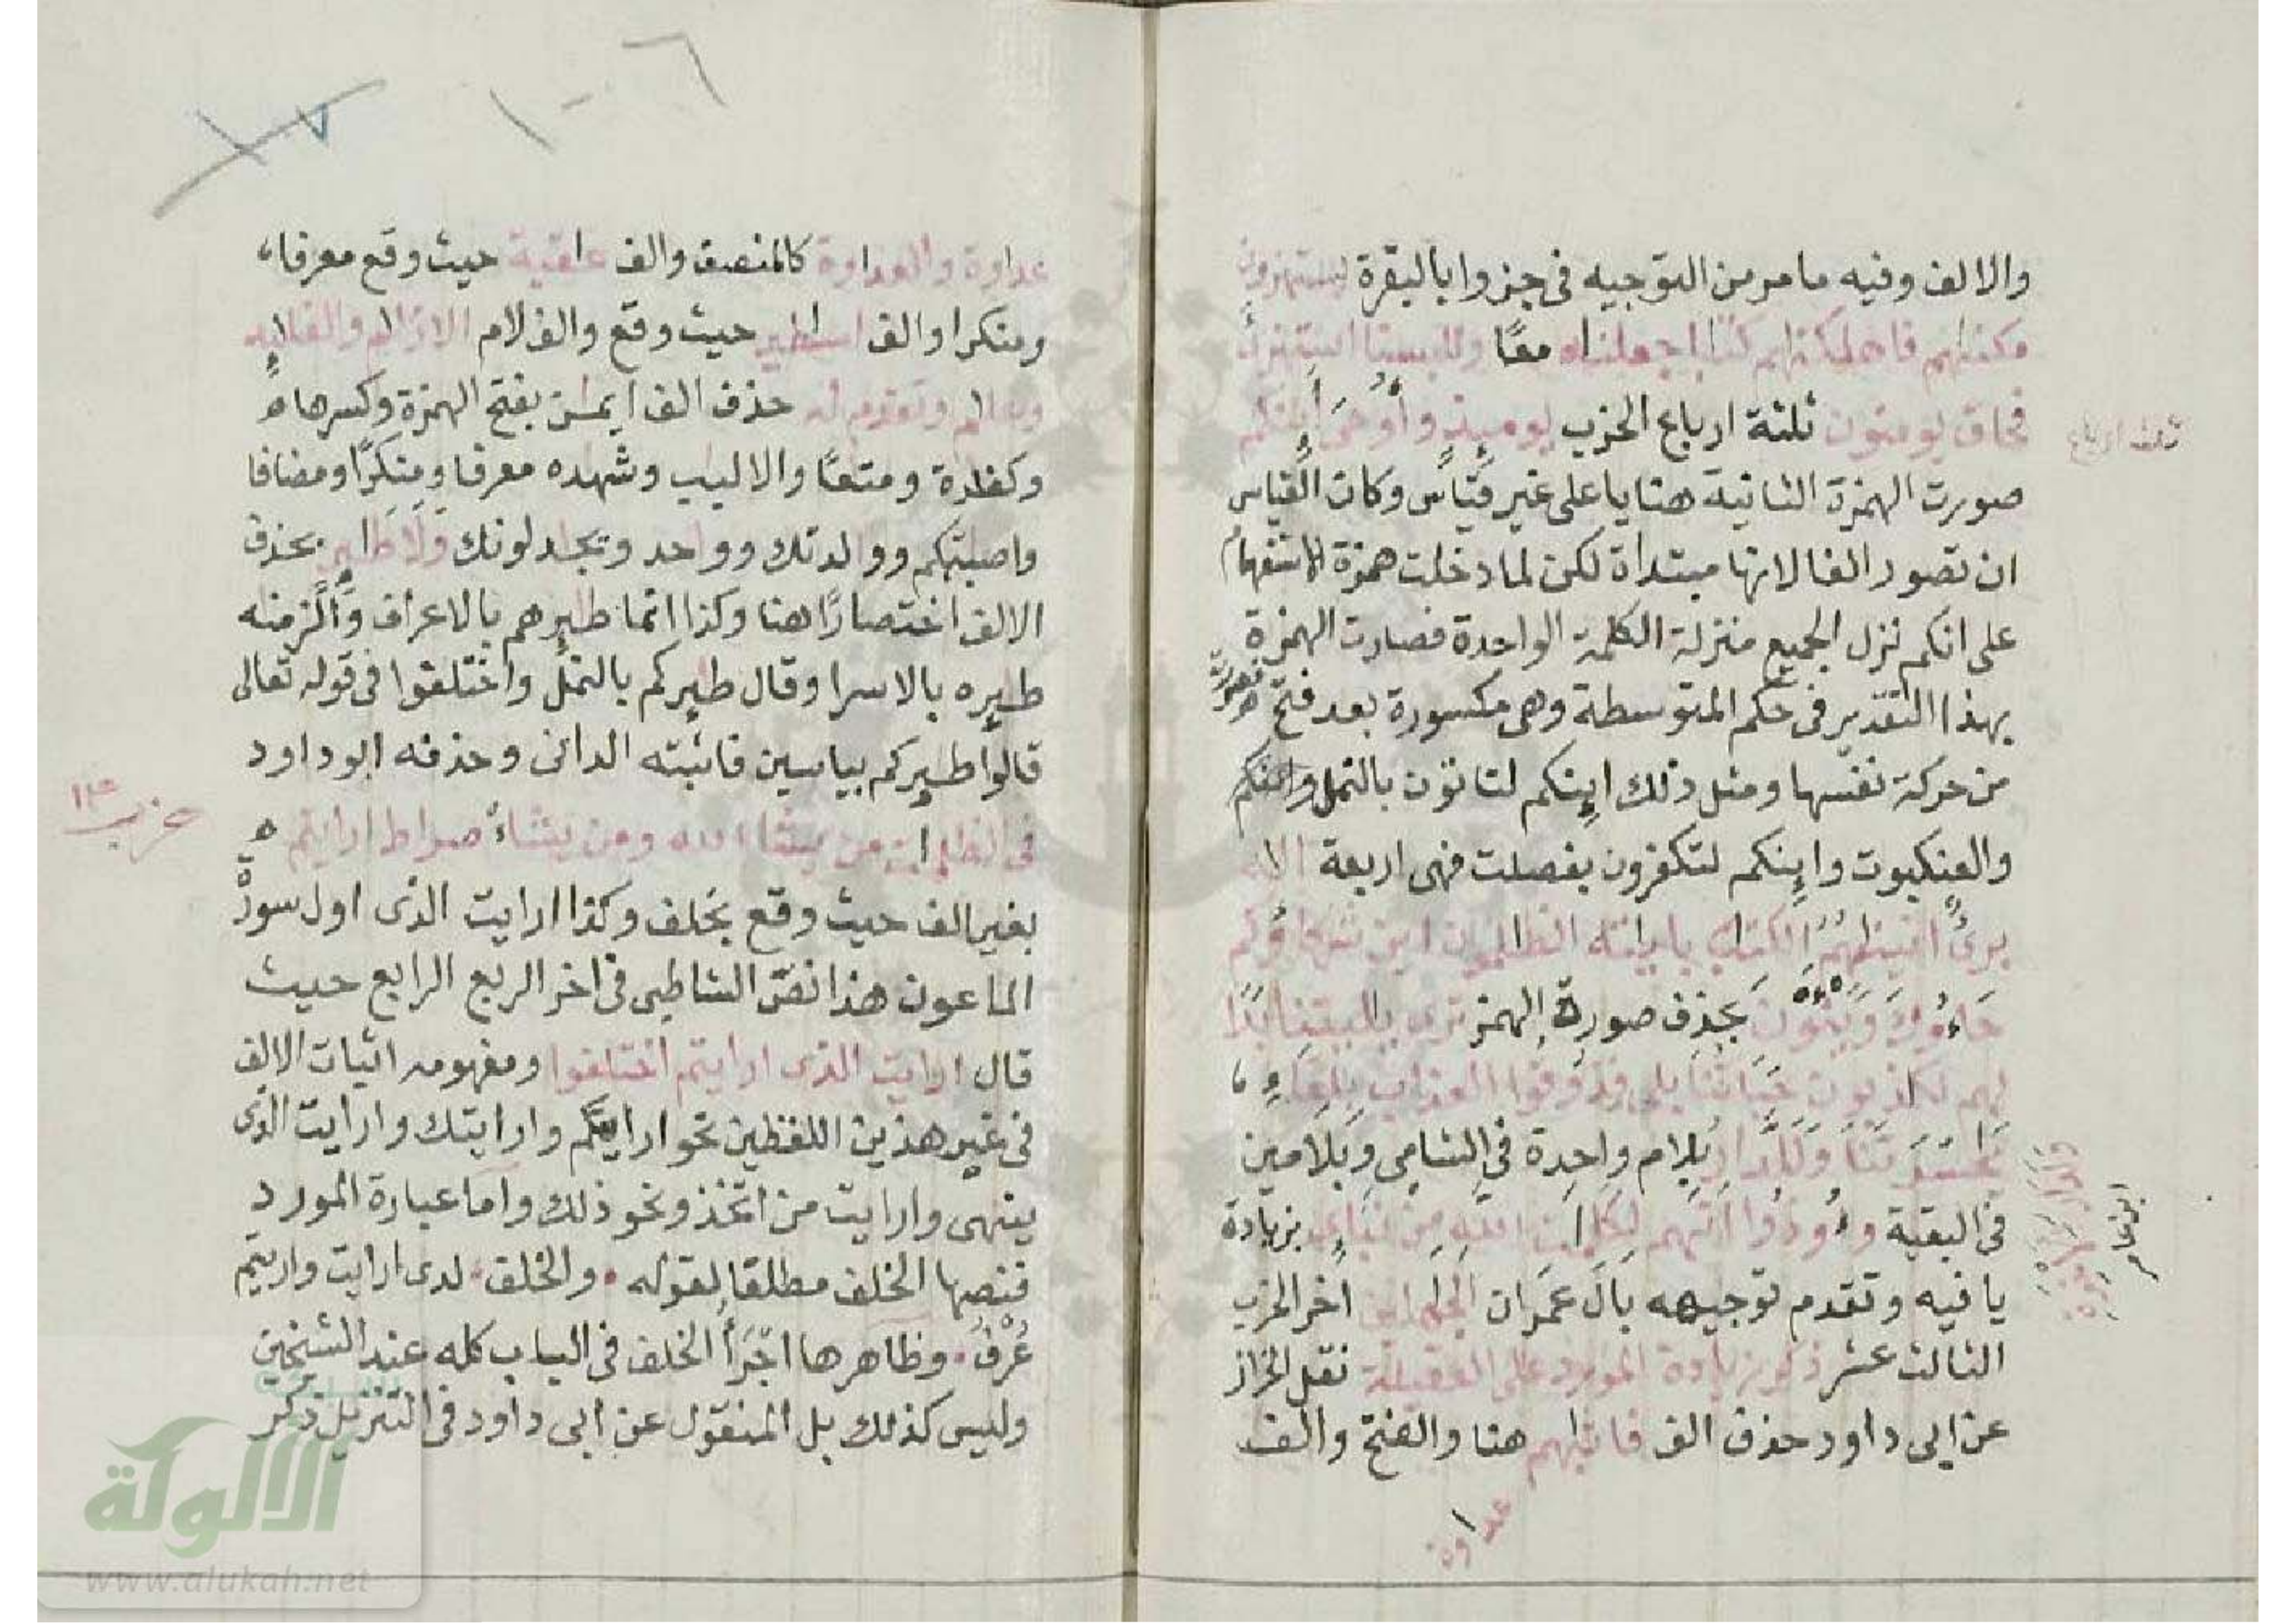 والالف وفيه ما مر من التوجيه فى جزوا بالبقرة يستهزؤن
مكنهم فاهلكنهم كتبا جعلنه معًا وللبسنا استهزئ
فحاق يومنون ثلثة ارباع الحزب يوميذ وأوحى أينكم
ثلث ارباع
صورت الهمزة الثانية هنا يا على غير قياس وكان القياس
ان تصور الفا لانها مبتدأة لكن لما دخلت همزة الاستفهام
على انكم نزل الجميع منزلة الكلمة الواحدة فصارت الهمزة
بهذا التقدير فى حكم المتوسطة وهى مكسورة بعد فتح فصورت
من حركة نفسها ومثل ذلك اينكم لتاتون بالنمل واينكم
والعنكبوت واينكم لتكفرون بفصلت فهى اربعة
برئ اتينهم الكتب بايته الظلمون اين شركاؤكم
جاءوك وينون بحذف صورة الهمز ترى بايتنا
لهم لكذبون حياتنا بلى فذوقوا العذاب بلقاء
يحسرتنا وللدار بلام واحدة فى الشامى وبلامين
فى البقية وأوذوا اتهم لكلمت الله من نباى بزيادة
يا فيه وتقدم توجيهه بال عمران الجهلين اخر الحزب
الثالث عشر ذكر زيادة المورد على العقيلة نقل الخراز
عن ابى داود حذف الف فاثبهم هنا والفتح والف
عداوة
عداوة والعداوة كالمنصف والف عقبة حيث وقع معرفا
ومنكرا والف اسطير حيث وقع والف لام الازلم والقليد
حذف الف ايمن بفتح الهمزة وكسرها
وكفرة ومتعا والالبب وشهده معرفا ومنكرًا ومضافا
واصبتكم وولدتك ووحد وتجدلونك ولا طير بحذف
الالف اختصارًا هنا وكذا انما طيرهم بالاعراف والزمنه
طيره بالاسرا وقال طيركم بالنمل واختلفوا فى قوله تعالى
قالوا طيركم بياسين فاثبته الدانى وحذفه ابو داود
حزب ١٤
فى الظلمت من يشا الله ومن يشاء صراط ارايتم
بغير الف حيث وقع بخلف وكذا ارايت الذى اول سورة
الماعون هذا نص الشاطبى فى اخر الربع الرابع حيث
قال ارايت الذى ارايتم اختلفوا ومفهومه اثبات الالف
فى غير هذين اللفظين نحو ارايتكم وارايتك وارايت الذى
ينهى وارايت من اتخذ ونحو ذلك واما عبارة المورد
فنصها الخلف مطلقا لقوله والخلف لدى ارايت واريتم
عُرف وظاهرها اجرأ الخلف فى الباب كله عند الشيخين
وليس كذلك بل المنقول عن ابى داود فى التنزيل ذكر
الألوكة
www.alukah.net